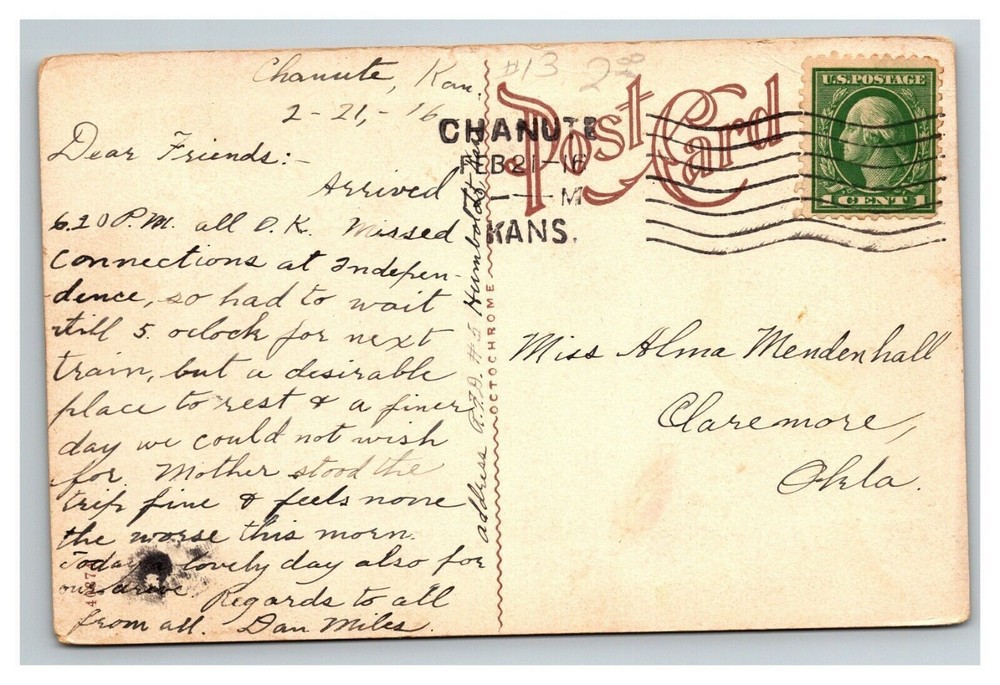 Chanute, Kan.
2-21,-'16
Dear Friends:-
Arrived
6.20 P.M. all O.K. Missed
connections at Indepen-
-dence, so had to wait
till 5. oclock for next
train, but a desirable
place to rest & a finer
day we could not wish
for. Mother stood the
trip fine & feels none
the worse this morn.
Today a lovely day also for
our drive. Regards to all
from all. Dan Miles.
address R.F.D. #5 Humboldt
OCTOCHROME
#13
Post Card
CHANUTE
FEB 21-16
M
KANS.
U.S. POSTAGE
1 CENT 1
Miss Alma Mendenhall
Claremore,
Okla.